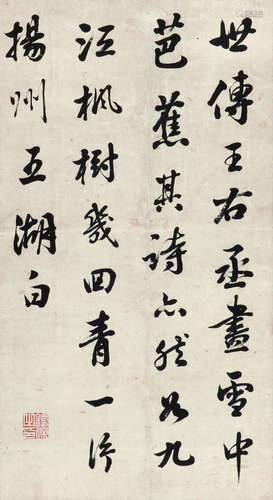 世傳王右丞畫雪中
芭蕉其詩亦然如九
江楓樹幾回青一片
揚州五湖白